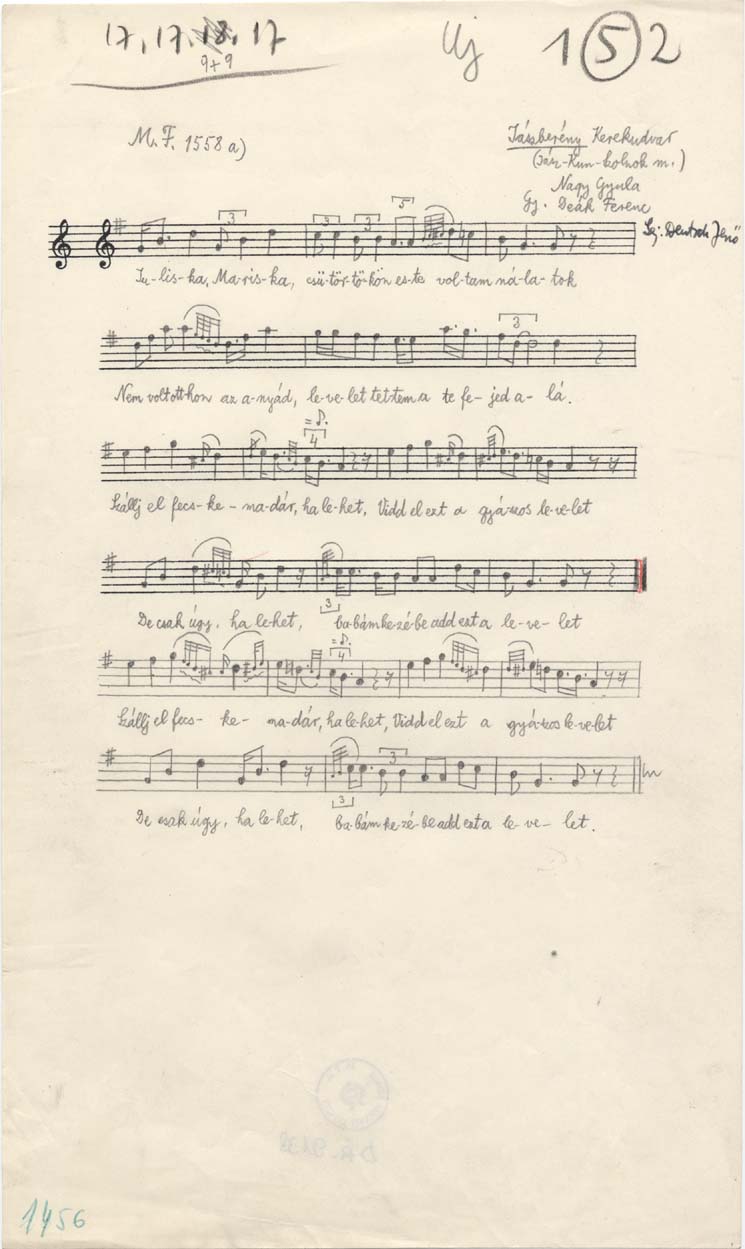 17, 17, 18, 17
9+9
Uj
1 5 2
M. F. 1558 a)
Jászberény Kerekudvar
(Jász-Kun-Szolnok m.)
Nagy Gyula
Gy. Deák Ferenc
Lej. Deutsch Jenő
3 3 3 5
Ju-lis-ka, Ma-ris-ka, csü-tör-tö-kön es-te vol-tam ná-la-tok
3
Nem volt otthon az a-nyád, le-ve-let tet-tem a te fe-jed a-lá.
4
Szállj el fecs-ke-ma-dár, ha le-het, Vidd el ezt a gyá-szos le-ve-let
De csak úgy, ha le-het, ba-bám ke-zé-be add ezt a le-ve-let
3
4
Szállj el fecs-ke-ma-dár, ha le-het, Vidd el ezt a gyá-szos le-ve-let
3
3
De csak úgy, ha le-het, ba-bám ke-zé-be add ezt a le-ve-let.
1456